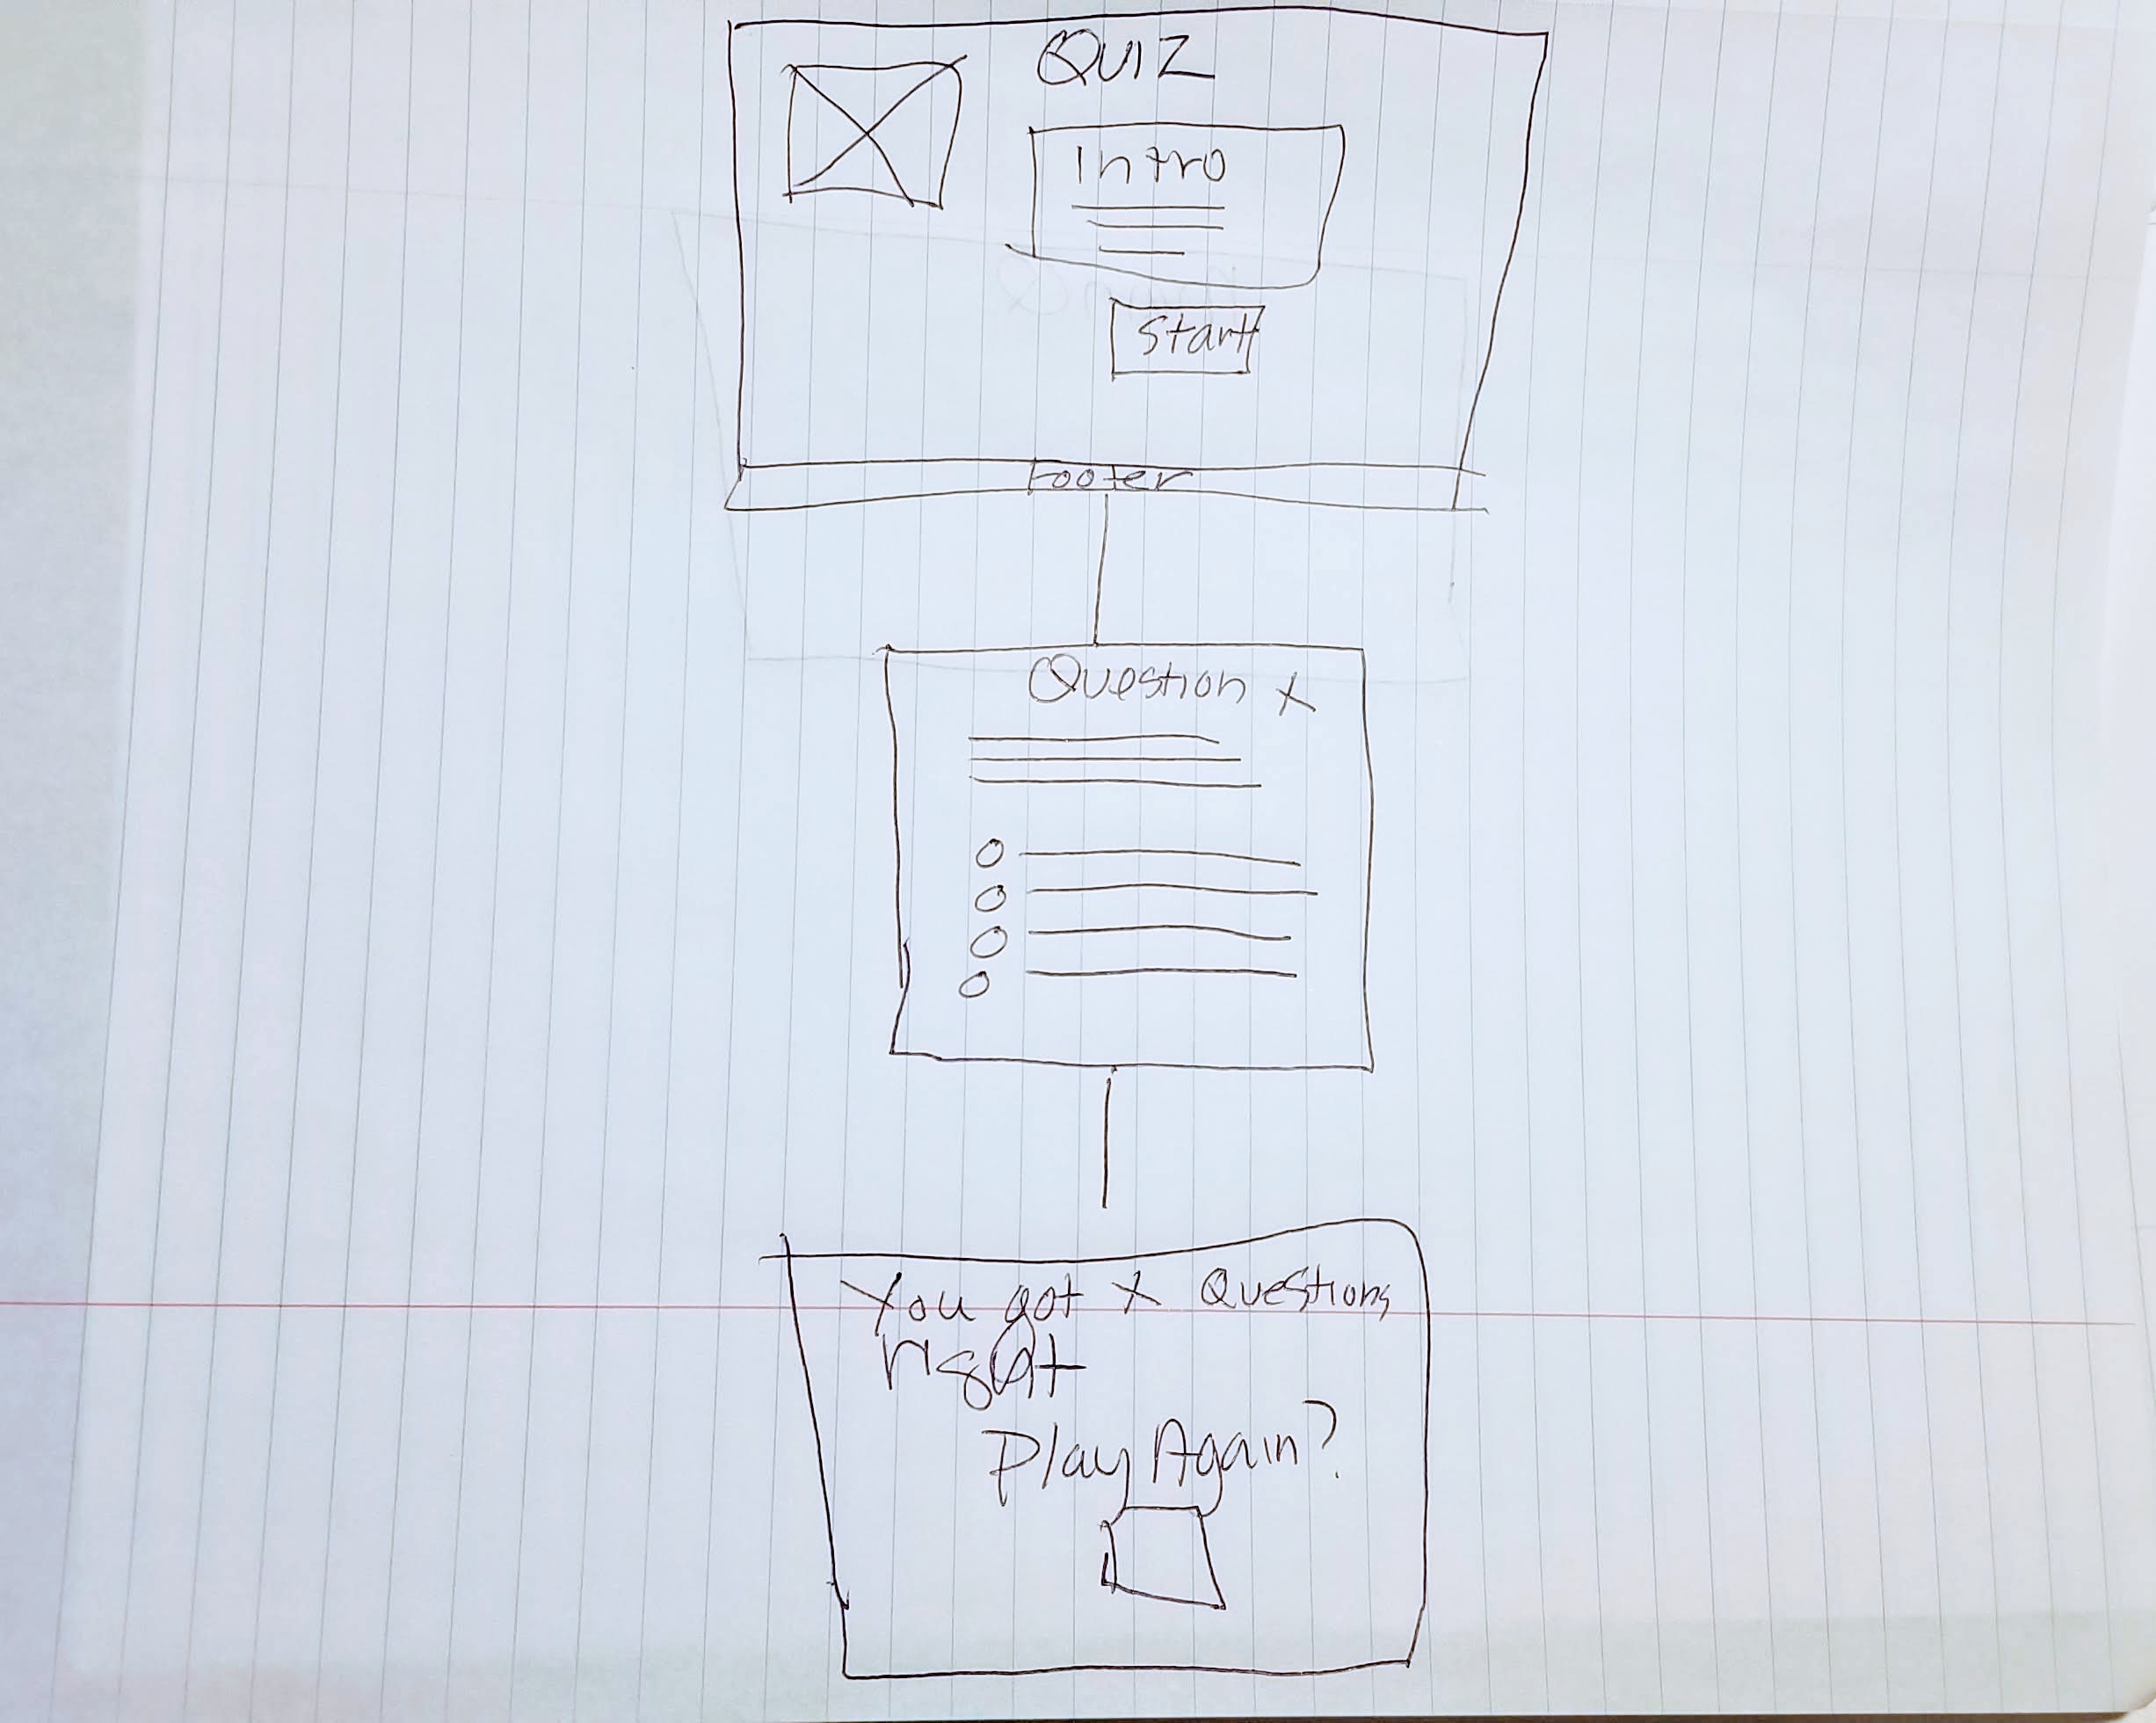 QUIZ
Intro
Start
Footer
Question X
You got X Questions
right
Play Again?